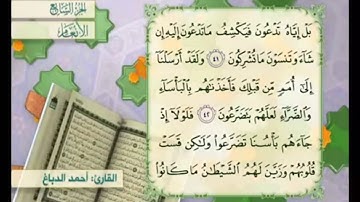 الجزء السابع
الأنعام
بَلْ إِيَّاهُ تَدْعُونَ فَيَكْشِفُ مَا تَدْعُونَ إِلَيْهِ إِن
شَآءَ وَتَنسَوْنَ مَا تُشْرِكُونَ ٤١ وَلَقَدْ أَرْسَلْنَآ
إِلَىٰٓ أُمَمٍ مِّن قَبْلِكَ فَأَخَذْنَٰهُم بِٱلْبَأْسَآءِ
وَٱلضَّرَّآءِ لَعَلَّهُمْ يَتَضَرَّعُونَ ٤٢ فَلَوْلَآ إِذْ
جَآءَهُم بَأْسُنَا تَضَرَّعُوا۟ وَلَٰكِن قَسَتْ
قُلُوبُهُمْ وَزَيَّنَ لَهُمُ ٱلشَّيْطَٰنُ مَا كَانُوا۟
القارئ: أحمد الدباغ